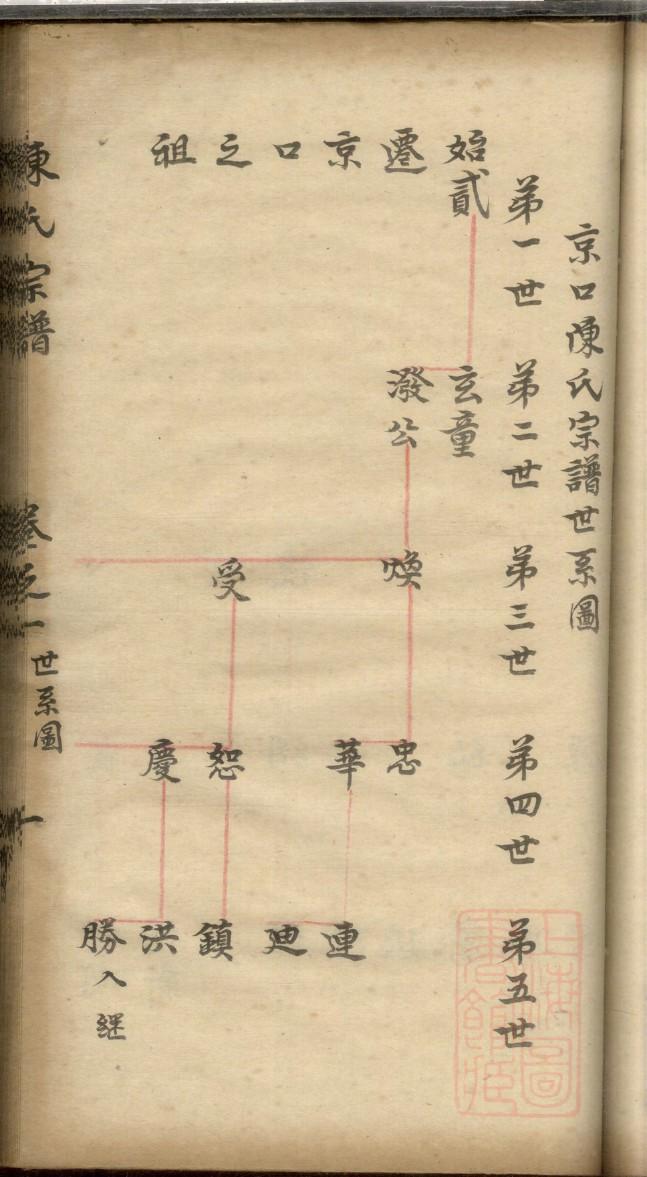 京口陳氏宗譜世系圖
第一世 第二世 第三世 第四世 第五世
始貳 玄童
遷 潑公 煥 忠
京 華 連
口 迪
之 受 恕 鎮
祖 慶 洪
勝入継
陳氏宗譜 卷之一 世系圖 一
上海圖書館藏